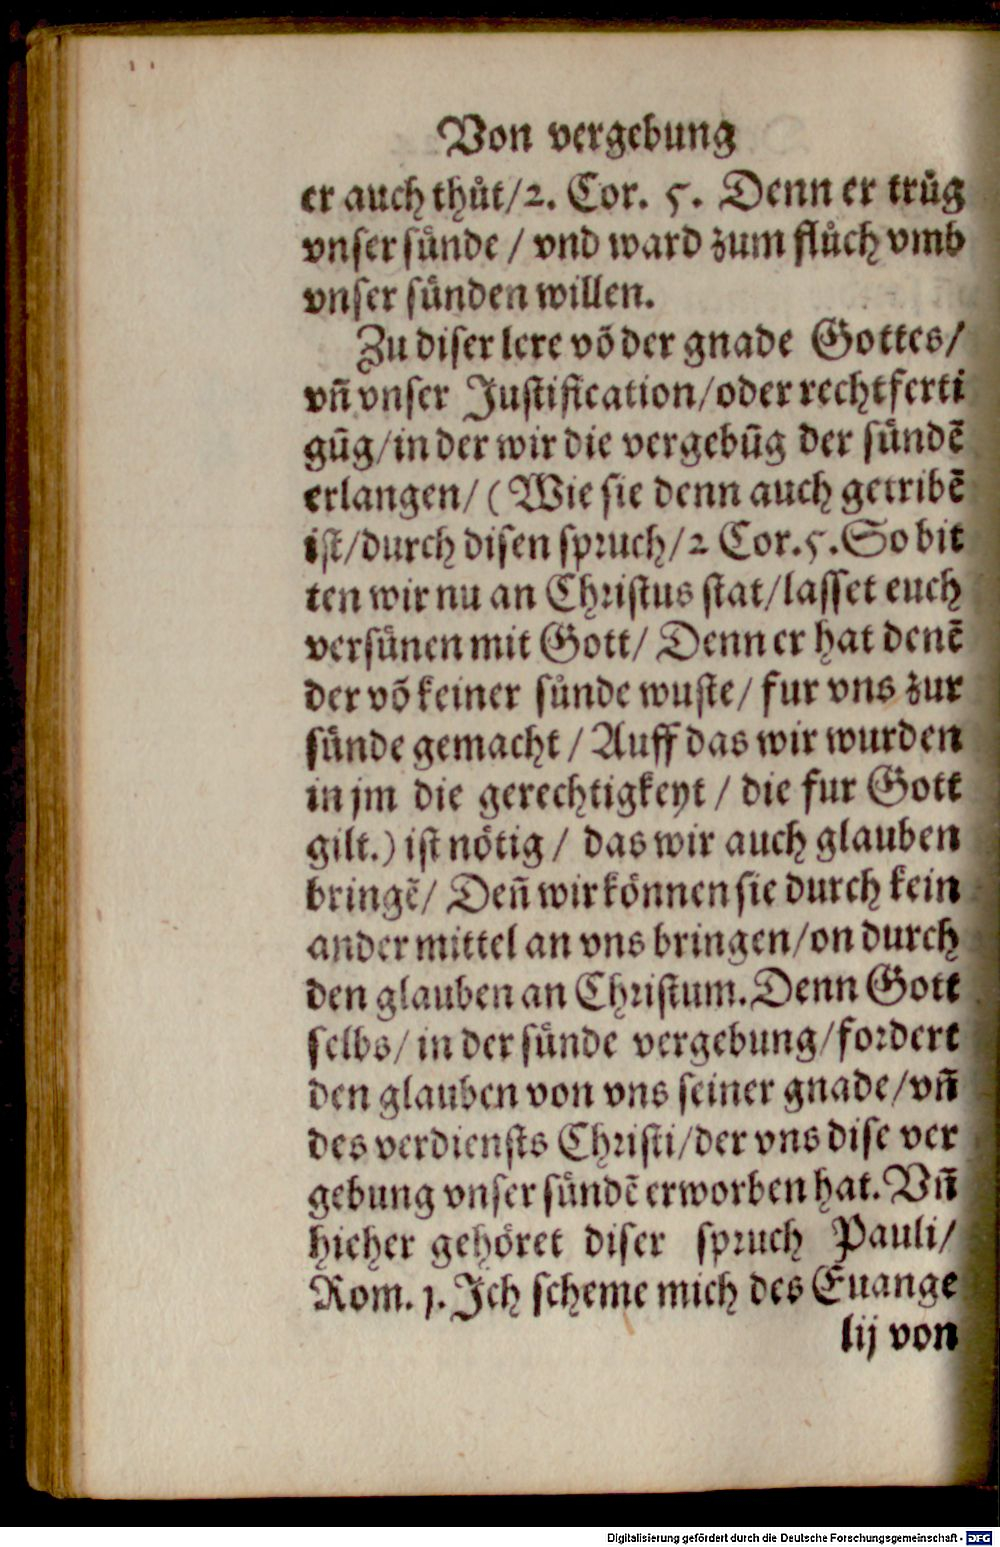 Von vergebung
er auch thůt/2. Cor. 5. Denn er trůg
vnser sünde / vnd ward zum flůch vmb
vnser sünden willen.
Zu diser lere võ der gnade Gottes/
vñ vnser Justification/oder rechtferti
gũg/in der wir die vergebũg der sündẽ
erlangen/ (Wie sie denn auch getribẽ
ist/durch disen spruch/2 Cor.5.So bit
ten wir nu an Christus stat/lasset euch
versünen mit Gott/ Denn er hat denẽ
der võ keiner sünde wuste/ fur vns zur
sünde gemacht / Auff das wir wurden
in jm die gerechtigkeyt / die fur Gott
gilt.) ist nötig / das wir auch glauben
bringẽ/ Deñ wir können sie durch kein
ander mittel an vns bringen/on durch
den glauben an Christum.Denn Gott
selbs/ in der sünde vergebung/fordert
den glauben von vns seiner gnade/vñ
des verdiensts Christi/der vns dise ver
gebung vnser sündẽ erworben hat.Vñ
hieher gehöret diser spruch Pauli/
Rom. 1. Ich scheme mich des Euange
lij von
Digitalisierung gefördert durch die Deutsche Forschungsgemeinschaft - DFG